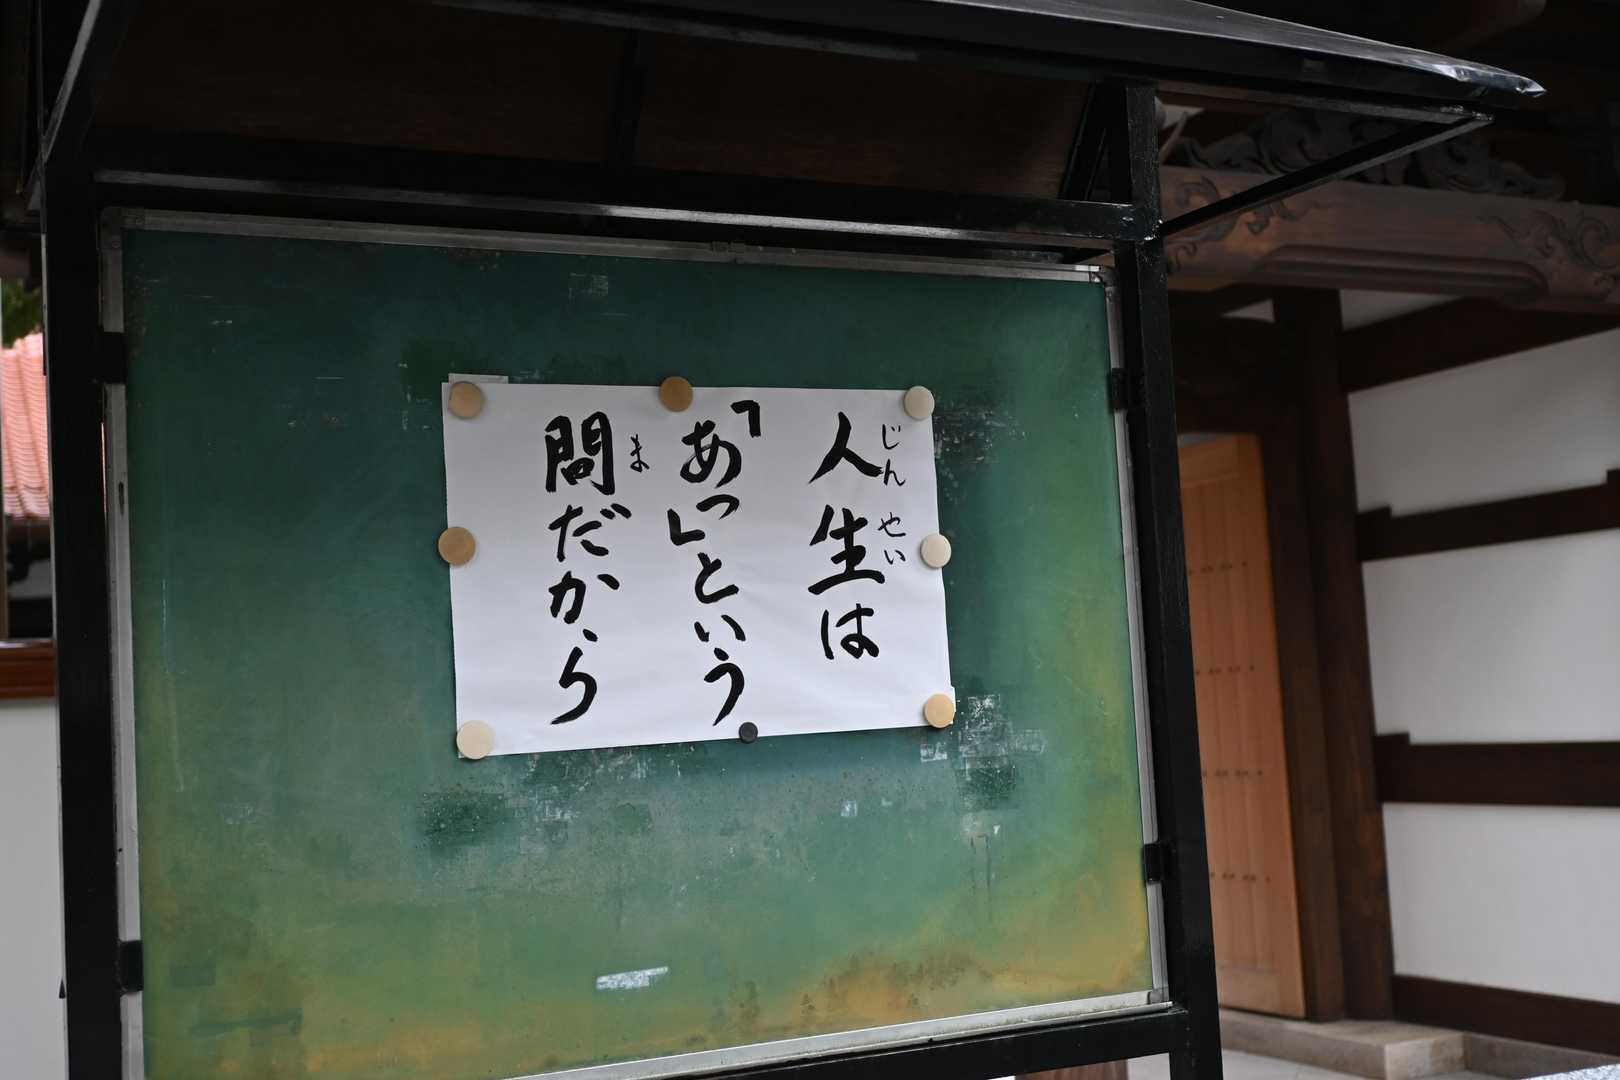 人生は
「あっ」という
間だから
じんせい
ま